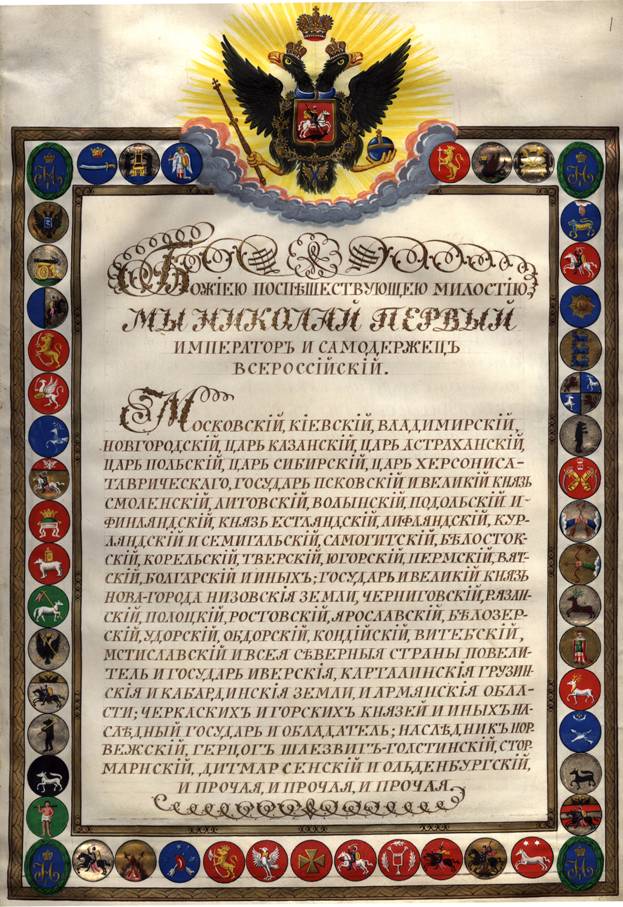 1
Божіею поспѣшествующею милостію,
МЫ НИКОЛАЙ ПЕРВЫЙ
ИМПЕРАТОРЪ И САМОДЕРЖЕЦЪ
ВСЕРОССІЙСКІЙ.
Московскій, Кіевскій, Владимирскій,
Новгородскій, Царь Казанскій, Царь Астраханскій,
Царь Польскій, Царь Сибирскій, Царь Херсониса-
Таврическаго, Государь Псковскій и Великій Князь
Смоленскій, Литовскій, Волынскій, Подольскій и
Финляндскій, Князь Естляндскій, Лифляндскій, Кур-
ляндскій и Семигальскій, Самогитскій, Бѣлосток-
скій, Корельскій, Тверскій, Югорскій, Пермскій, Вят-
скій, Болгарскій и иныхъ; Государь и Великій Князь
Нова-города Низовскія земли, Черниговскій, Рязан-
скій, Полоцкій, Ростовскій, Ярославскій, Бѣлозер-
скій, Удорскій, Обдорскій, Кондійскій, Витебскій,
Мстиславскій и всея Сѣверныя страны Повели-
тель и Государь Иверскія, Карталинскія Грузин-
скія и Кабардинскія земли, и Армянскія Обла-
сти; Черкаскихъ и Горскихъ Князей и иныхъ На-
слѣдный Государь и Обладатель; Наслѣдникъ Нор-
вежскій, Герцогъ Шлезвигъ-Голстинскій, Стор-
марнскій, Дитмарсенскій и Ольденбургскій,
и прочая, и прочая, и прочая.